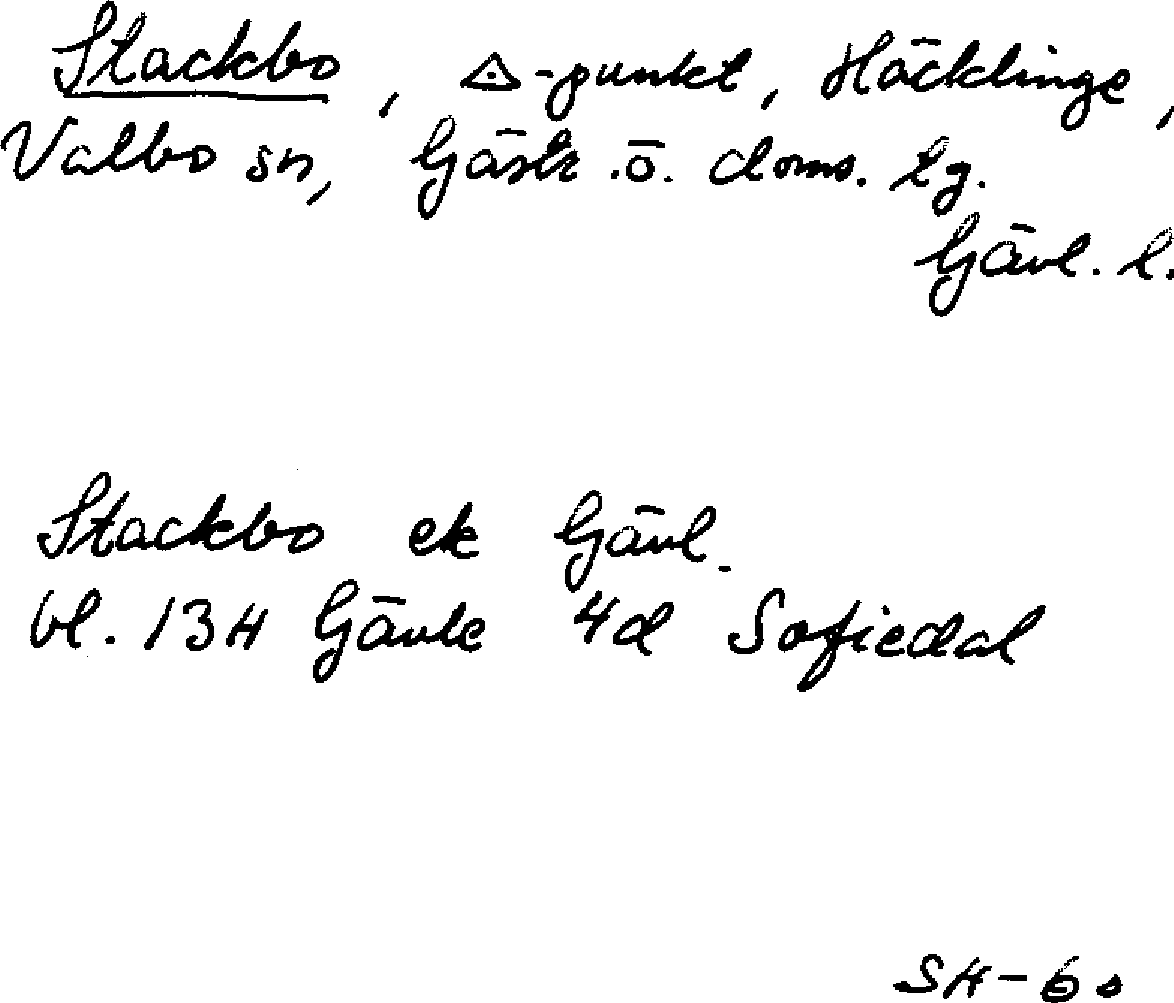 Stackbo, △-punkt, Häcklinge,
Valbo sn, Gästr. ö. doms. lg.
Gävl. l.
Stackbo ek Gävl.
bl. 13H Gävle 4d Sofiedal
SH-60